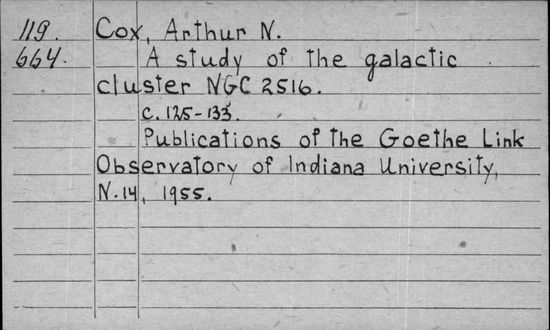 119. Cox, Arthur N.
664. A study of the galactic
cluster NGC 2516.
c. 125-133.
Publications of the Goethe Link
Observatory of Indiana University,
N. 14, 1955.